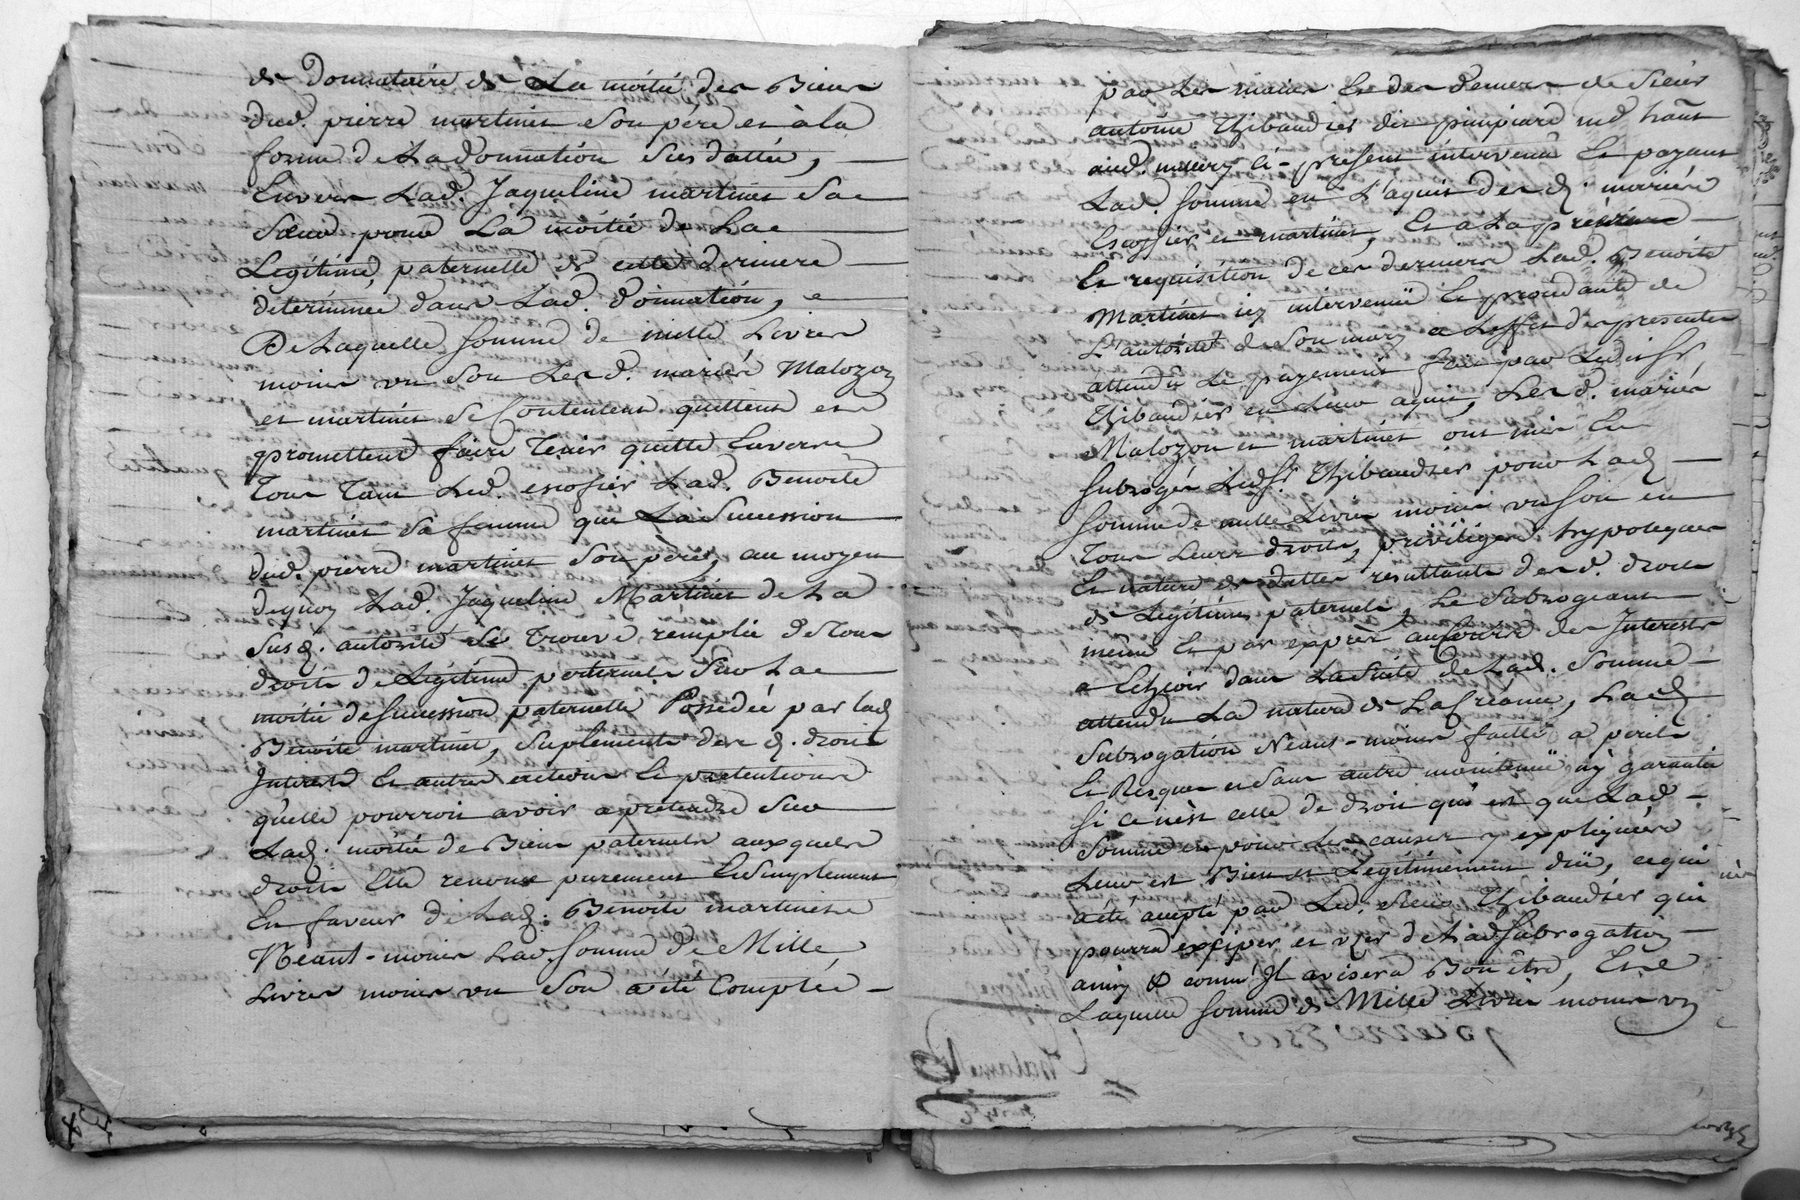 de Donnataire de La moitié des Biens
dud. pierre martinet Son pere et à la
forme de La donnation Sus dattée,
Envers Lad. Jaqueline martinet Sa
Sœur pour La moitié de La
Legitime paternelle de cette derniere
déterminée dans Lad. donnation, e
De Laquelle somme de mille Livres
moins un Sou Lesd. mariés Malozon
et martinet Se Contentent quittent et
promettent faire Tenir quitte Envers
Tous Tant Led. escofier Lad. Benoite
martinet Sa femme que La Succession
dud. pierre martinet Son père, au moyen
dequoy Lad. Jaqueline Martinet de La
Susd. autorité Se Trouve remplie de Tous
droits de Legitime paternels Sur La
moitié de Succession paternelle Possedée par lad.
Benoite martinet, Suplements desd. droits
Interest Et autres actions Et pretentions
qu'elle pourroit avoir a pretendre Sur
Lad. moitié de Biens paternels auxquels
droits Elle renonce purement Et Simplement
En faveur de Lad. Benoite martinet
Neant-moins Lad. somme de Mille
Livres moins un Sou a été Comptée
par Les mains Et des deniers de Sieur
antoine Thibaudier dit pimpiare md hāut
aud. mury ci-présent intervenu Et payant
Lad. somme en L'aquit desd. mariés
Escoffier et martinet, Et a La prèsence
Et requisition de ces derniers Lad. Benoite
Martinet icy intervenüe Et procedante de
L'autorité de Son mary a L'effet des presentes
attendu Le payement fait par Ledit Sr
Thibaudier en Leur aquit, Lesd. mariés
Malozon et martinet ont mis Et
subrogés Ledsr. Thibaudier pour Lad.
somme de mille Livres moins un sou en
Tous Leurs droits, priviliges hypoteques
Et nature de dattes resultants desd. droits
de Legitime paternels, Le Subrogeant
même Et par exprès au Cours des Interests
a Echeoir dans La Suite de Lad. Somme
attendu La nature de La Créance, Lad.
Subrogation Neant-moins faitte a perils
Et Risques et Sans autre maintenüe ny garantie
si ce n'est celle de droit qui est que Lad.
Somme et pour Les causes y expliquées
Leur est Bien et Legitimement düe, ce qui
a été accepté par Led. Sieur Thibaudier qui
pourra exciper et user de Lad Subrogation
ainsy & comme Il avisera Bon être, Et
Laquelle somme de Mille Livres moins un